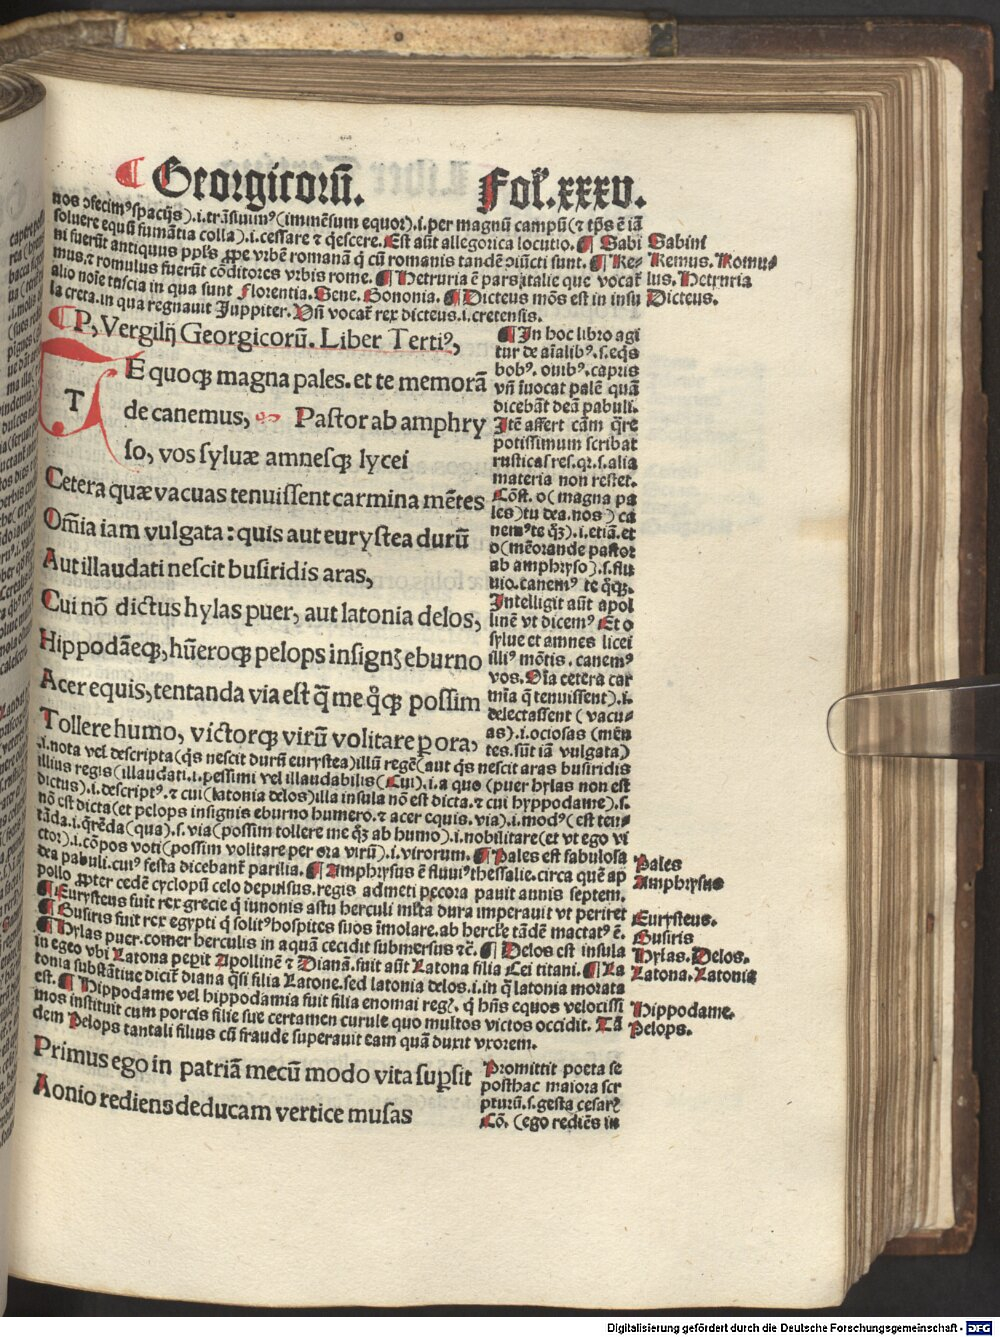 ¶ Georgicorū. Fol. xxxv.
nos ɔfecimꝰ spacijs) .i. trāsiuimꝰ (immēsum equor) .i. per magnū campū (⁊ tp̄s ē iā
soluere equū fumātia colla) .i. cessare ⁊ q̄escere. Est aūt allegorica locutio. ¶ Sabi Sabini
ni fuerūt antiquus ppl̄s ꝓpe vrbē romanā q̄ cū romanis tandē ɔiūcti sunt. ¶ Re- Remus. Romu-
mus. ⁊ romulus fuerūt cōditores vrbis rome. ¶ Hetruria ē pars italie que vocat̄ lus. Hetruria
alio noīe tuscia in qua sunt Florentia. Sene. Bononia. ¶ Dicteus mōs est in insu Dicteus.
la creta. in qua regnauit Juppiter. Vn̄ vocat̄ rex dicteus .i. cretensis.
¶ P, Vergilij Georgicorū. Liber Tertiꝰ,
TE quoqꝫ magna pales. et te memorā
de canemus, Pastor ab amphry
so, vos syluæ amnesqꝫ lycei
Cetera quæ vacuas tenuissent carmina mētes
Om̄ia iam vulgata: quis aut eurystea durū
Aut illaudati nescit busiridis aras,
Cui nō dictus hylas puer, aut latonia delos,
Hippodāeqꝫ, hūeroqꝫ pelops insignꝫ eburno
Acer equis, tentanda via est q̄ me q̊qꝫ possim
Tollere humo, victorqꝫ virū volitare ꝑ ora,
¶ In hoc libro agi
tur de aīalibꝰ. s. eq̄s
bobꝰ. ouibꝰ. capris
vn̄ īuocat palē quā
dicebāt deā pabuli.
Itē affert cām q̄re
potissimum scribat
rusticas res. qꝛ. s. alia
materia non restet.
Cōst. o (magna pa
les) tu dea. nos) ca
nemꝰ te q̄ꝫ) .i. etiā. et
o (mēorande pastor
ab amphryso) .s. flu
uio. canemꝰ te q̄qꝫ.
Intelligit aūt apol
linē vt dicemꝰ Et o
sylue et amnes licei
illiꝰ mōtis. canemꝰ
vos. Oīa cetera car
mīa q̄ tenuissent) .i.
delectassent (vacu-
as) .i. ociosas (mēn
tes. sūt iā vulgata)
.i. nota vel descripta (q̄s nescit durū eurystea) illū regē (aut q̄s nescit aras busiridis
illius regis (illaudati .i. pessimi vel illaudabilis (Cui) .i. a quo (puer hylas non est
dictus) .i. descriptꝰ. ⁊ cui (latonia delos) illa insula nō est dicta. ⁊ cui hyppodame) .s.
nō est dicta (et pelops insignis eburno humero. ⁊ acer equis. via) .i. modꝰ (est ten-
tāda .i. q̄rēda (qua) .s. via (possim tollere me q̄ꝫ ab humo) .i. nobilitare (et vt ego vi
ctor) .i. cōpos voti (possim volitare per ora virū) .i. virorum. ¶ Pales est fabulosa
dea pabuli. cuiꝰ festa dicebant̄ parilia. ¶ Amphrysus ē fluuiꝰ thessalie. circa quē ap
pollo ꝓpter cedē cyclopū celo depulsus. regis admeti pecora pauit annis septem.
¶ Eurysteus fuit rex grecie q̄ iunonis astu herculi ml̄ta dura imperauit vt periret
¶ Busiris fuit rex egypti q̄ solitꝰ hospites suos īmolare. ab hercl̄e tādē mactatꝰ ē.
¶ Hylas puer. comer herculis in aquā cecidit submersus ⁊c̄. ¶ Delos est insula
in egeo vbi Latona pepit Apollinē ⁊ Dianā. fuit aūt Latona filia Cei titani. ¶ La
tonia substātiue dicit̄ diana q̄si filia Latone. sed latonia delos .i. in q̄ latonia morata
est. ¶ Hippodame vel hippodamia fuit filia enomai regꝭ. q̄ hn̄s equos velocissi
mos instituit cum porcis filie sue certamen curule quo multos victos occidit. Tā
dem Pelops tantali filius cū fraude superauit eam quā duxit vxorem.
Pales
Amphrysus
Eurysteus.
Busiris
Hylas. Delos.
Latona. Latonia
Hippodame.
Pelops.
Primus ego in patriā mecū modo vita suꝑsit
Aonio rediens deducam vertice musas
Promittit poeta se
posthac maiora scr
pturū. s. gesta cesarꝭ
Cō. (ego rediēs in
Digitalisierung gefördert durch die Deutsche Forschungsgemeinschaft - DFG